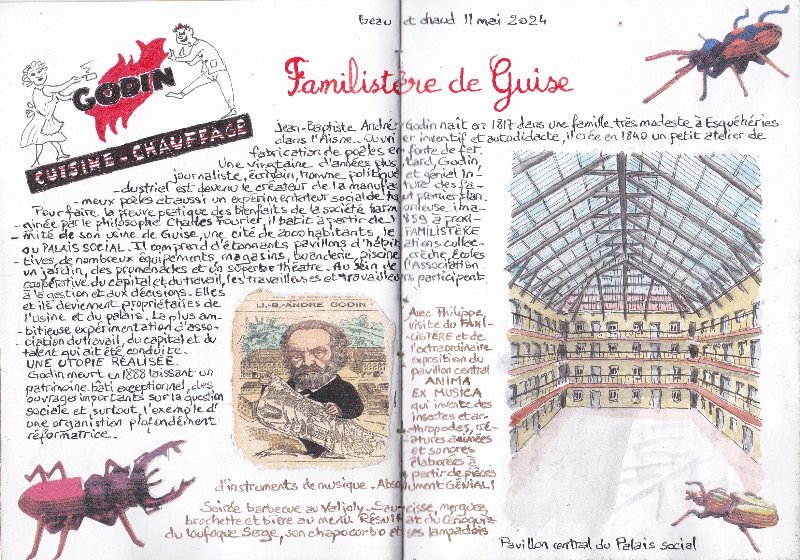 beau et chaud 11 mai 2024
GODIN
CUISINE - CHAUFFAGE
Familistère de Guise
Jean-Baptiste André Godin naît en 1817 dans une famille très modeste à Esquéhéries
dans l'Aisne. Ouvrier inventif et autodidacte, il crée en 1840 un petit atelier de
fabrication de poêles en fonte de fer.
Une vingtaine d'années plus tard, Godin,
journaliste, écrivain, homme politique et génial in-
-dustriel est devenu le créateur de la manufacture des fa-
-meux poêles et aussi un expérimentateur social de tout premier plan.
Pour faire la preuve pratique des bienfaits de la société harmonieuse ima-
-ginée par le philosophe Charles Fourier, il bâtit à partir de 1859 à proxi-
-mité de son usine de Guise, une cité de 2000 habitants, le FAMILISTÈRE
ou PALAIS SOCIAL. Il comprend d'étonnants pavillons d'habitations collec-
-tives, de nombreux équipements, magasins, buanderie, piscine, crèche, écoles
un jardin, des promenades et un superbe théatre. Au sein de l'Association
coopérative du capital et du travail, les travailleuses et travailleurs participent
à la gestion et aux décisions. Elles
et ils deviennent propriétaires de
l'usine et du palais. La plus am-
-bitieuse expérimentation d'asso-
-ciation du travail, du capital et du
talent qui ait été conduite.
UNE UTOPIE RÉALISÉE.
Godin meurt en 1888 laissant un
patrimoine bâti exceptionnel, des
ouvrages importants sur la question
sociale et surtout, l'exemple d'
une organistion profondément
réformatrice.
J.-B.-ANDRÉ GODIN
Avec Philippe
visite du FAMI-
-LISTÈRE et de
l'extraordinaire
exposition du
pavillon central
ANIMA
EX MUSICA
qui invente des
insectes et ar-
-thropodes, cré-
-atures animées
et sonores
élaborées à
partir de pièces
d'instruments de musique. Absolument GÉNIAL!
Soirée barbecue au Valjoly. Saucisse, merguez,
brochette et bière au menu Résultat du
du loufoque Serge, son chapocorbo et ses lampadois
Pavillon central du Palais social